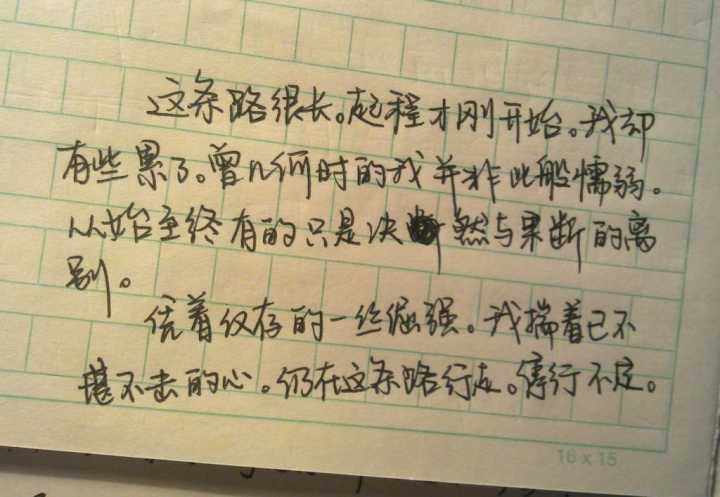 这条路很长。起程才刚开始。我却
有些累了。曾几何时的我并非此般懦弱。
从始至终有的只是决然与果断的离
别。
凭着仅存的一丝倔强。我揣着已不
堪不去的心。仍在这条路行走。停行不定。
16 x 15